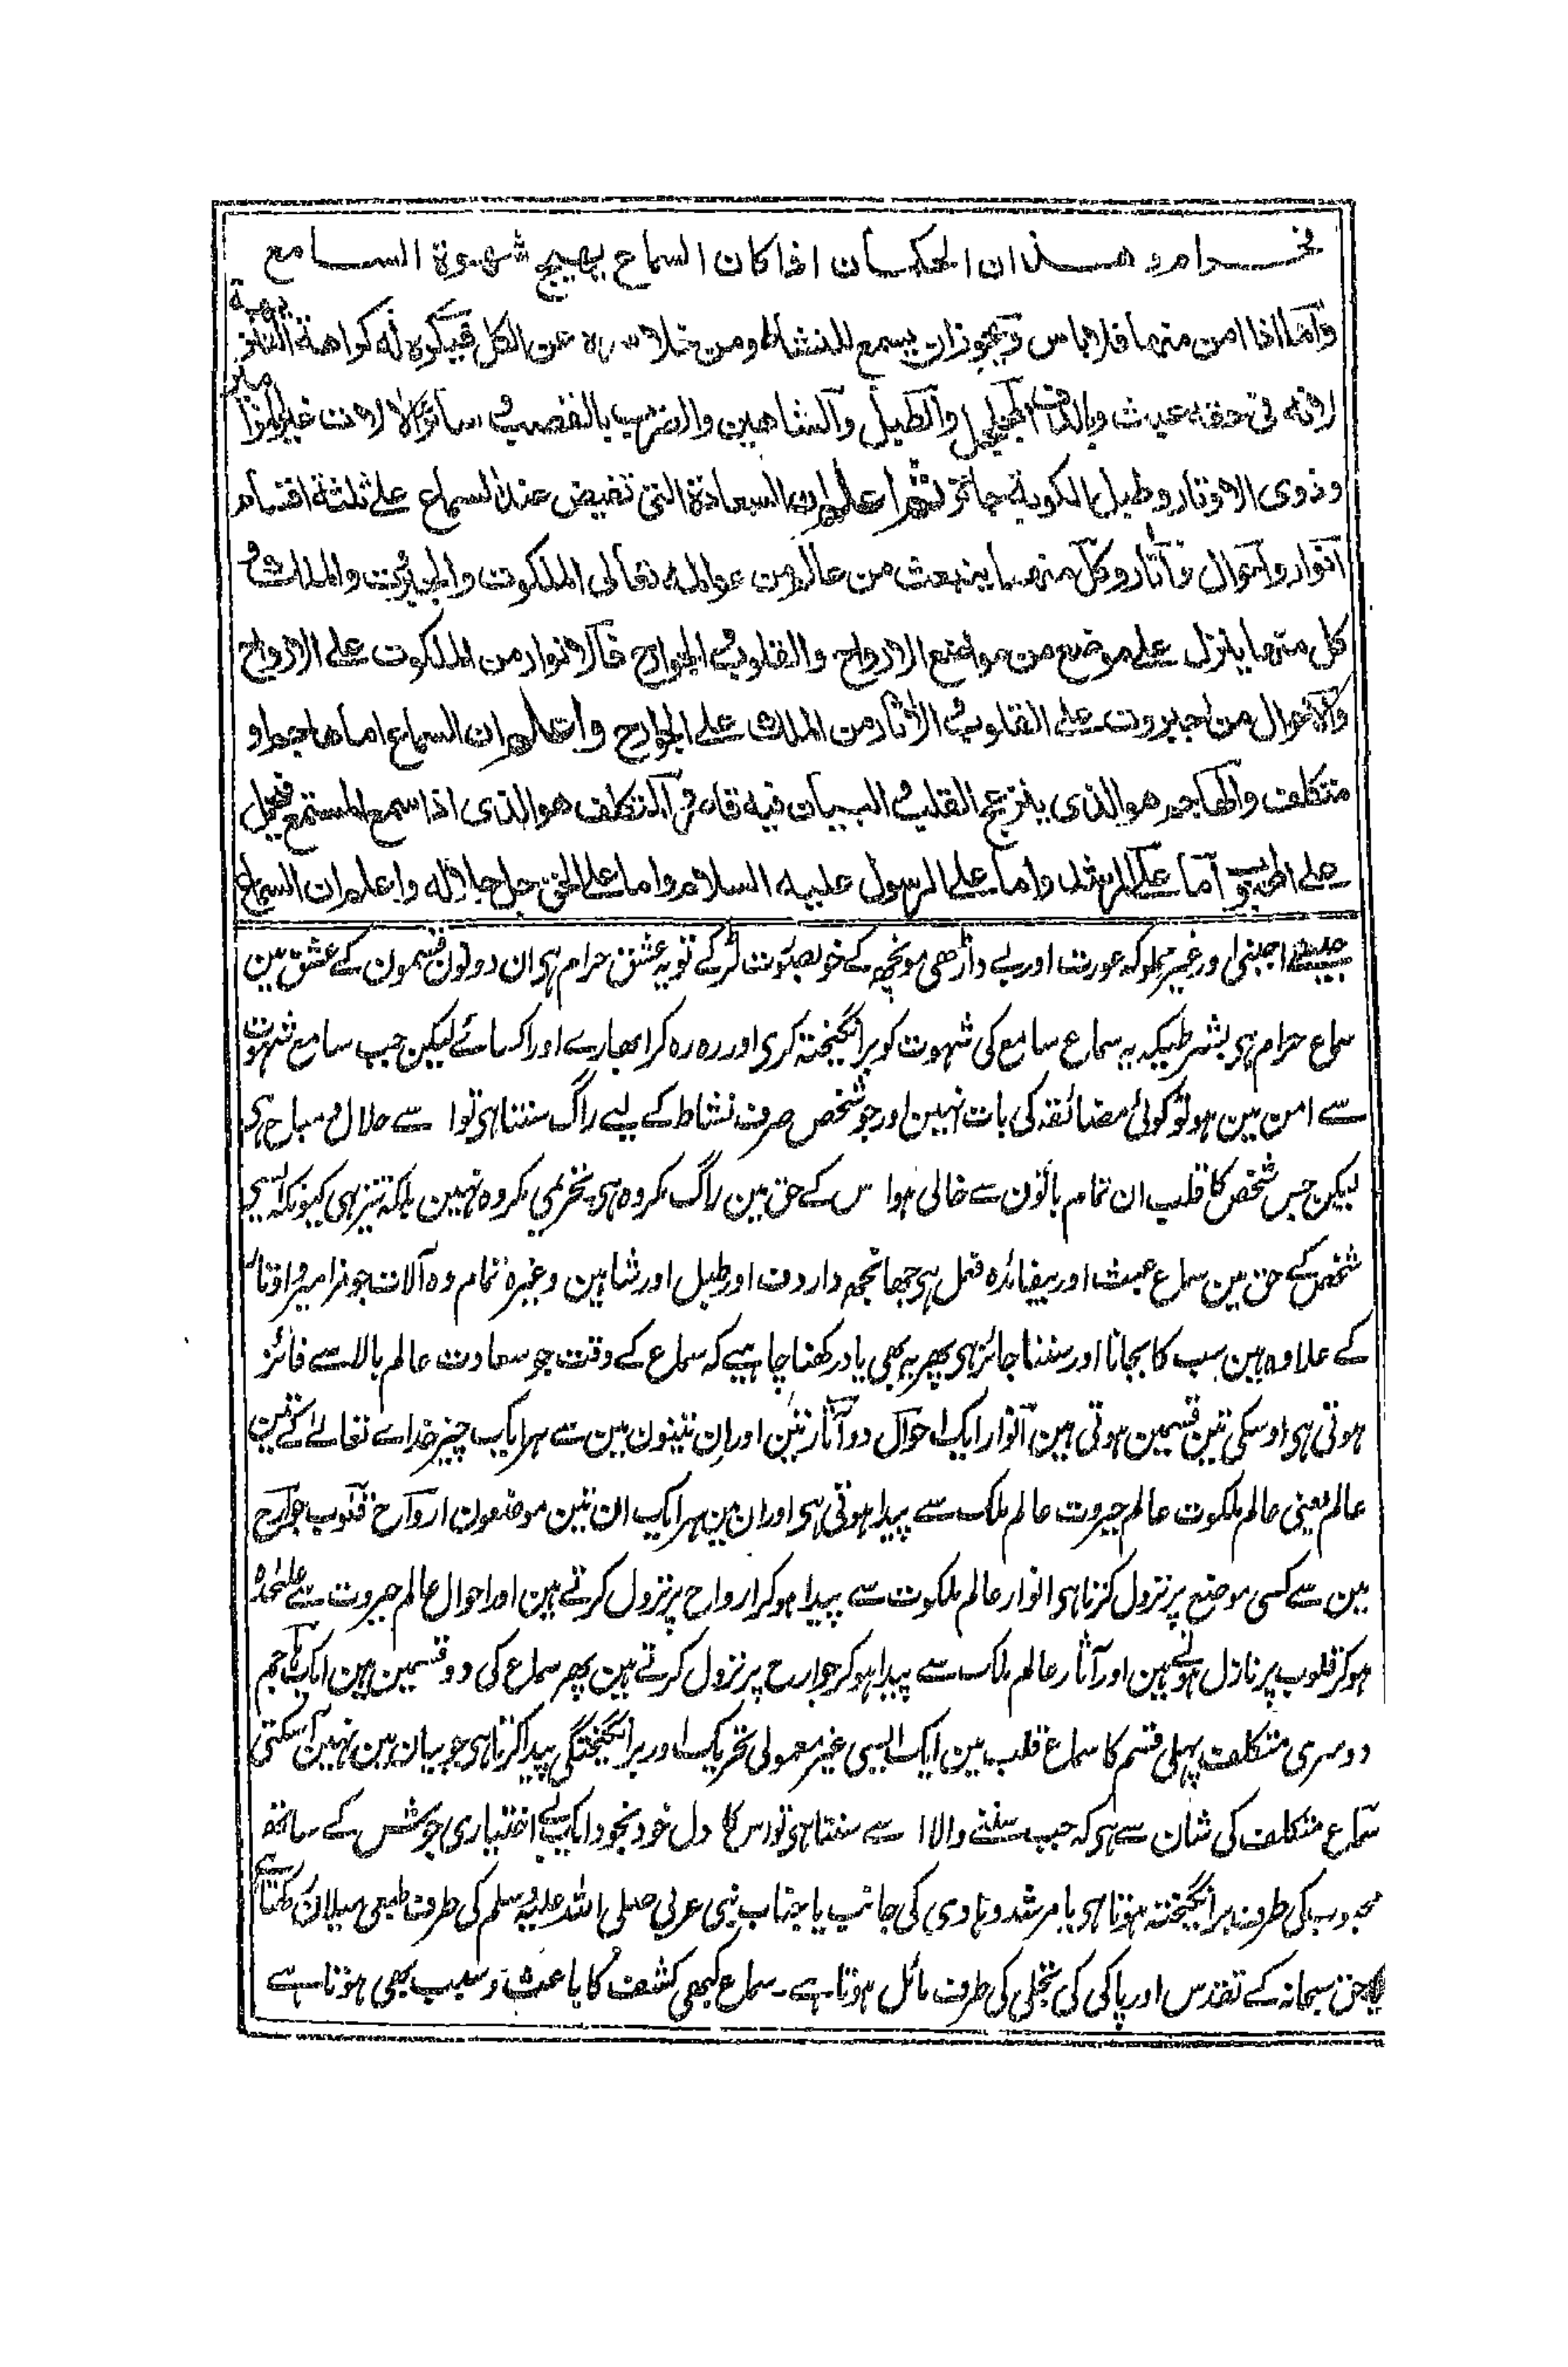 فحرام وهذان الحكمان اذا كان السماع يهيج شهوة السامع
واما اذا امن منهما فلا باس ويجوز ان يسمع للنشاط ومن خلا سره عن الكل فيكره له كراهة التنزيهية
لانه فى حقه عبث وبالدف الجلجل والطبل والشاهين والضرب بالقضيب وسائر الالات غير المزامير
وذوى الاوتار وطبل الكوبة جائز ثم اعلم ان السعادة التى تفيض عند السماع على ثلثة اقسام
انوار واحوال وآثار وكل منهما ينبعث من عالم من عوالمه تعالى الملكوت والجبروت والملك و
كل منهما ينزل على موضع من مواضع الارواح والقلوب والجوارح فالانوار من الملكوت على الارواح
والاحوال من الجبروت على القلوب والآثار من الملك على الجوارح واعلم ان السماع اما هاجم او
متكلف والهاجم هو الذى ينزعج القلب والبيان فيه قاصر والمتكلف هو الذى اذا سمع المستمع فيحيل
على اما على المرشد واما على الرسول عليه السلام واما على الحق جل جلاله واعلم ان السماع
جیسے اجنبی اور غیر مملوکہ عورت اور بے داڑھی مونچھ کے خوبصورت لڑکے تو یہ عشق حرام ہی ان دونوں قسمون کے عشق مین
سماع حرام ہی بشرطیکہ یہ سماع سامع کی شہوت کو برانگیختہ کری اور رہ رہ کر ابھارے اور اکسائے لیکن جب سامع شہوت
سے امن مین ہو تو کوئی مضائقہ کی بات نہین اور جو شخص صرف نشاط کے لیے راگ سنتا ہی تو اسے حلال و مباح ہی
لیکن جس شخص کا قلب ان تمام باتون سے خالی ہو اس کے حق مین راگ مکروہ ہی تحریمی مکروہ نہین بلکہ تنزیہی کیونکہ ایسے
شخص کے حق مین سماع عبث اور بیفائدہ فعل ہی جھانجھ دار دف اور طبل اور شاہین وغیرہ تمام وہ آلات جو مزامیر و اوتار
کے علاوہ ہین سب کا بجانا اور سننا جائز ہی پھر یہ بھی یاد رکھنا چاہیے کہ سماع کے وقت جو سعادت عالم بالا سے فائز
ہوتی ہی اوسکی تین قسمین ہوتی ہین انوار ایک احوال دو آثار تین اور ان تینون مین سے ہر ایک چیز خداے تعالے کے تین
عالم یعنی عالم ملکوت عالم جبروت عالم ملک سے پیدا ہوتی ہی اور ان مین ہر ایک ان تین موضعون ارواح قلوب جوارح
مین سے کسی موضع پر نزول کرتا ہی انوار عالم ملکوت سے پیدا ہو کر ارواح پر نزول کرتے ہین اور احوال عالم جبروت سے علٰحدہ
ہو کر قلوب پر نازل ہوتے ہین اور آثار عالم ملک سے پیدا ہو کر جوارح پر نزول کرتے ہین پھر سماع کی دو قسمین ہین ایک ہاجم
دوسری متکلف پہلی قسم کا سماع قلب مین ایک ایسی غیر معمولی تحریک اور برانگیختگی پیدا کرتا ہی جو بیان مین نہین آ سکتی
سماع متکلف کی شان سے ہی کہ جب سننے والا اسے سنتا ہی تو اس کا دل خود بخود ایک بے اختیاری جوش کے ساتھ
محبوب کی طرف برانگیختہ ہوتا ہی یا مرشد و ہادی کی جانب یا جناب نبی عربی صلی اللہ علیہ وسلم کی طرف طبعی میلان رکھتا ہے
یا حق سبحانہ کے تقدس اور پاکی کی تجلی کی طرف مائل ہوتا ہے۔ سماع کبھی کشف کا باعث و سبب بھی ہوتا ہے